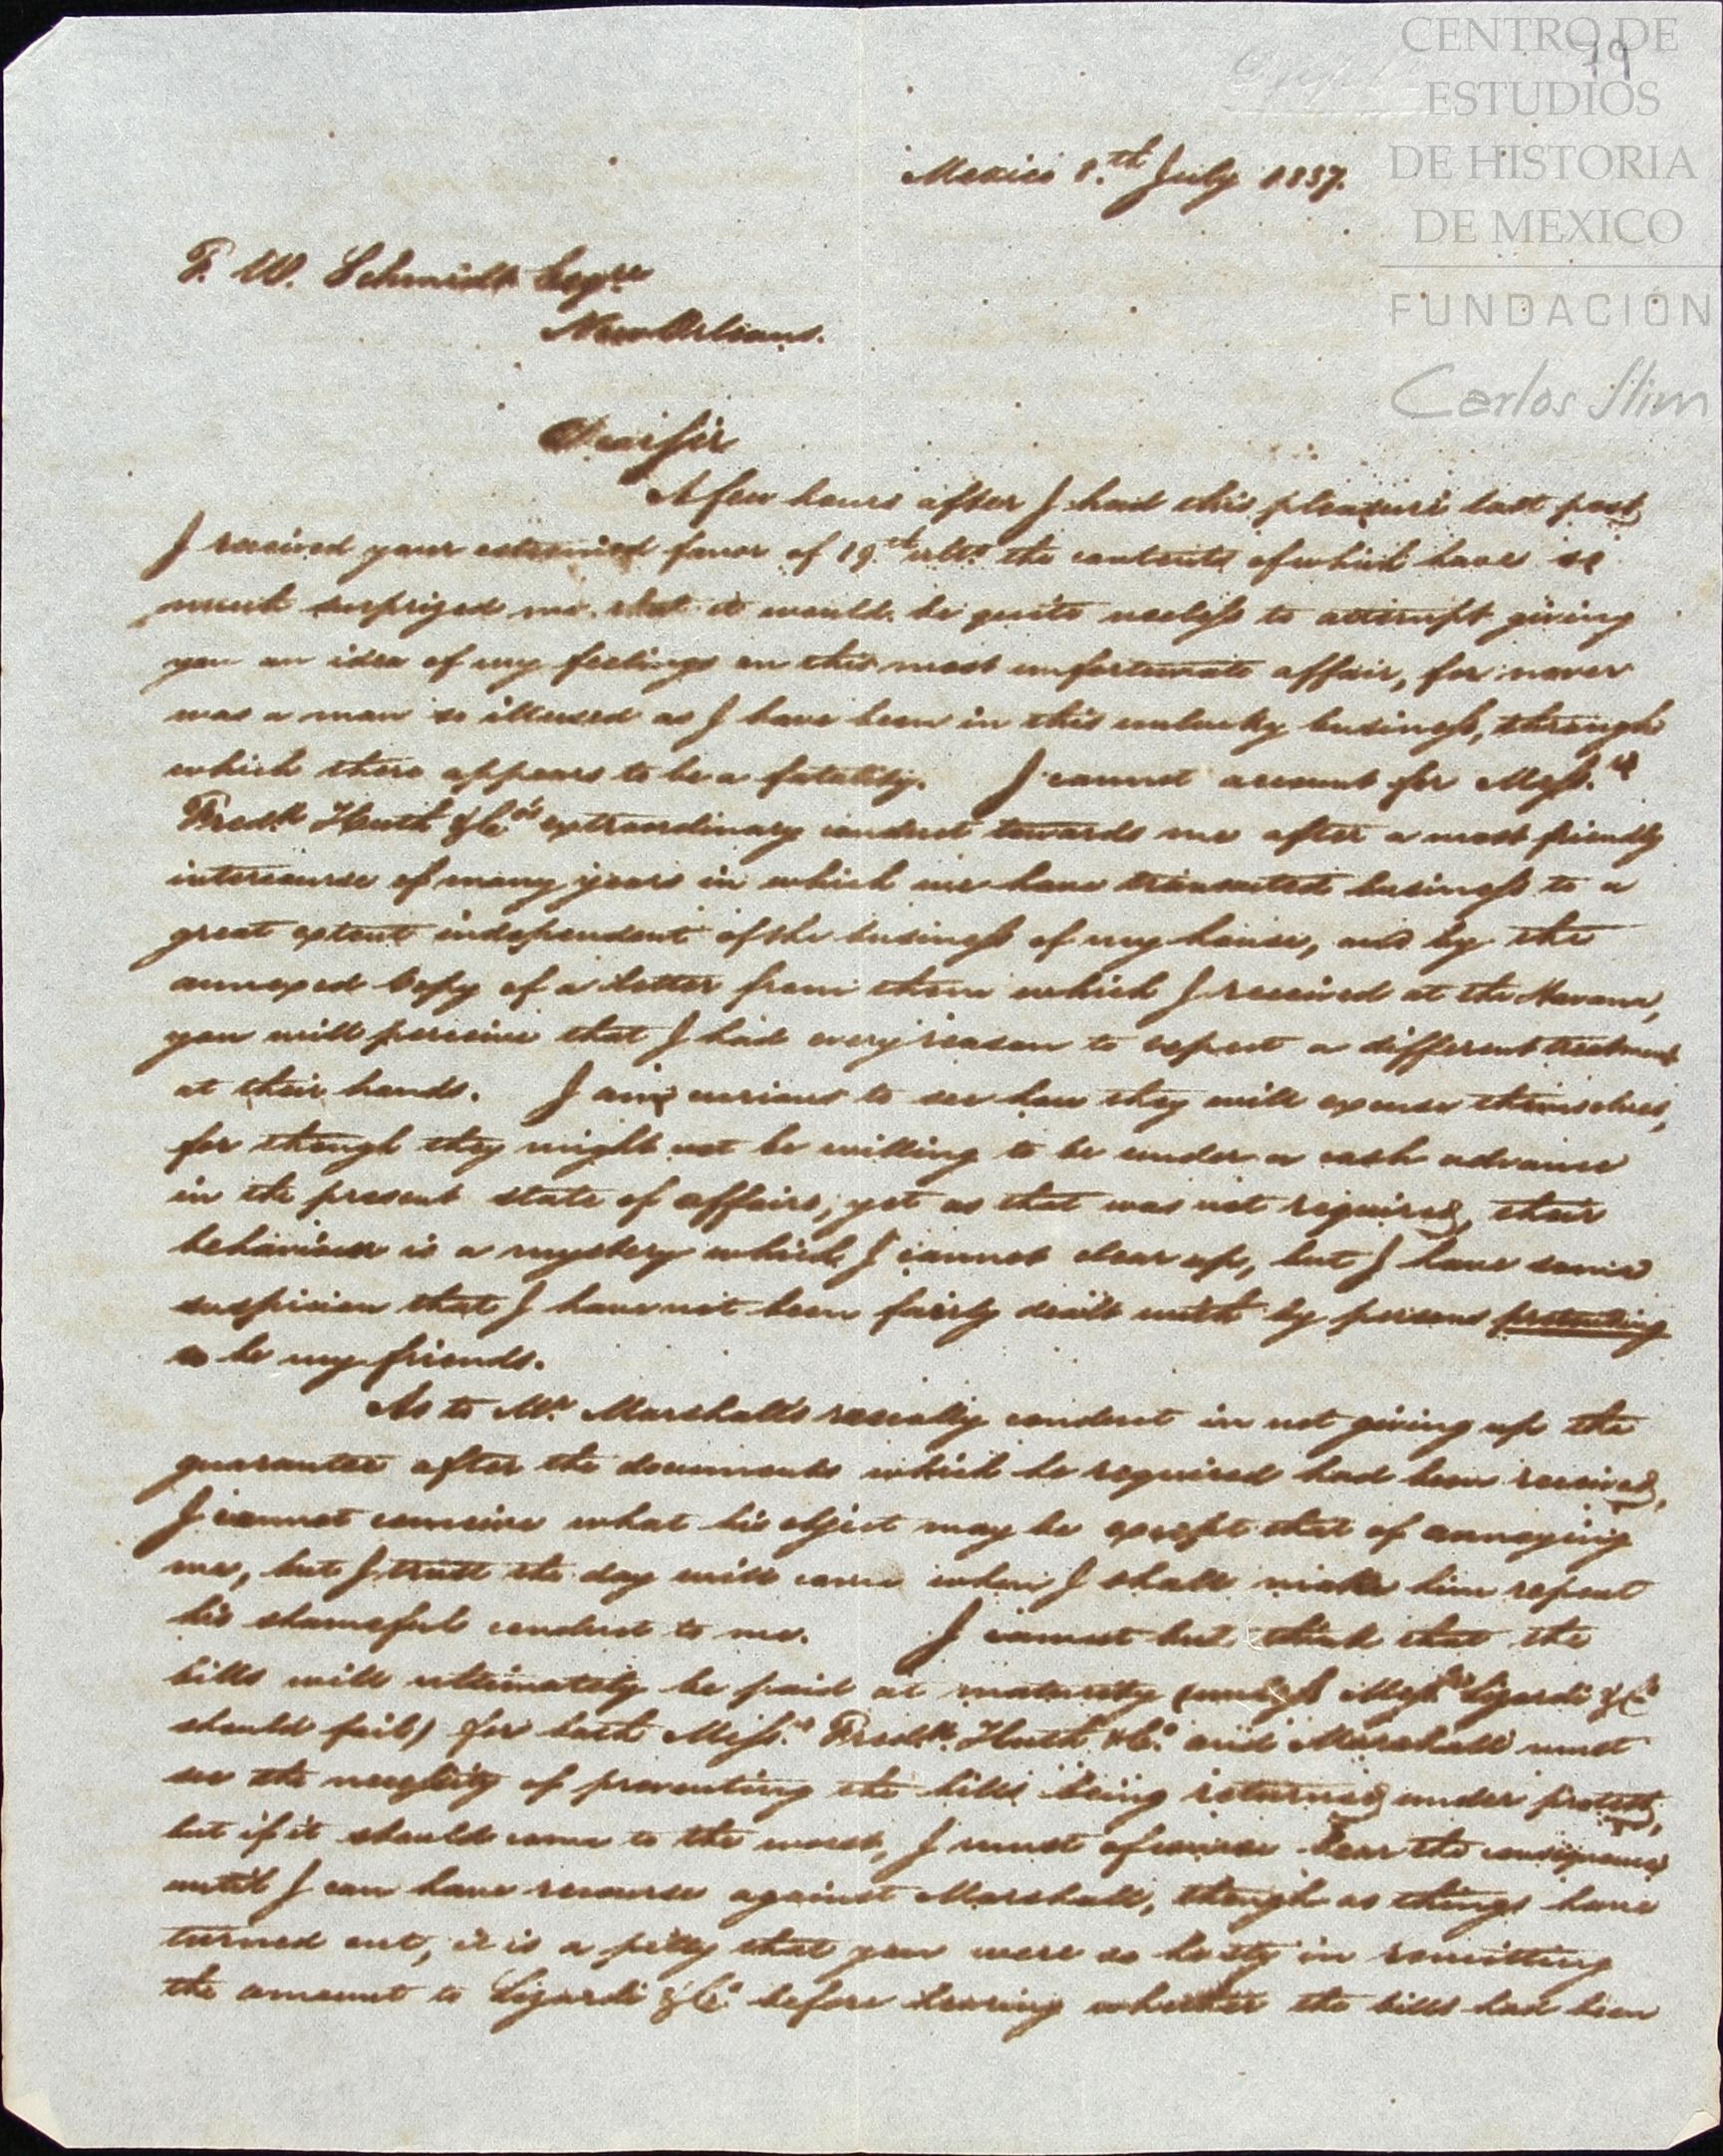 CENTRO DE
ESTUDIOS
DE HISTORIA
DE MEXICO
FUNDACIÓN
Carlos Slim
19
Mexico 8.th July 1837.
F. W. Schmidt Esqre
New Orleans.
Dear Sir
A few hours after I had this pleasure last post,
I received your esteemed favor of 19.th ulto. the contents of which have so
much surprized me that it would be quite useless to attempt giving
you an idea of my feelings on this most unfortunate affair, for never
was a man so illused as I have been in this unlucky business, through
which there appears to be a fatality. I cannot account for Mess.rs
Fredk. Huth & Co's extraordinary conduct towards me after a most friendly
intercourse of many years in which we have transacted business to a
great extent independent of the business of my house, and by the
annexed Copy of a letter from them which I received at the Havana,
you will perceive that I had every reason to expect a different treatment
at their hands. I am curious to see how they will excuse themselves,
for though they might not be willing to be under a cash advance
in the present state of affairs, yet as that was not required, their
behaviour is a mystery which I cannot clear up, but I have some
suspicion that I have not been fairly dealt with by persons pretending
to be my friends.
As to Mr. Marshall's rascally conduct in not giving up the
guarantee after the documents which he required had been received,
I cannot conceive what his object may be except that of annoying
me, but I trust the day will come when I shall make him repent
his shameful conduct to me. I cannot but think that the
bills will ultimately be paid at maturity (unless Messrs Lizardi & Co
should fail) for both Mess.rs Fredk. Huth & Co. and Marshall must
see the necessity of preventing the bills being returned under protest,
but if it should come to the worst, I must of course bear the consequences
until I can have recourse against Marshall, though as things have
turned out, it is a pitty that you were so hasty in remitting
the amount to Lizardi & Co. before hearing whether the bills had been